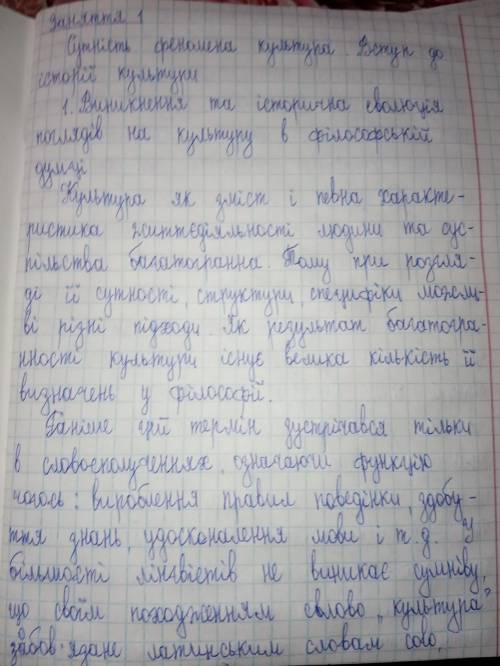 Заняття 1
Сутність феномена культура. Вступ до
історії культури
1. Виникнення та історична еволюція
поглядів на культуру в філософській
думці
Культура як зміст і певна характе-
ристика життєдіяльності людини та сус-
пільства багатогранна. Тому при розгля-
ді її сутності, структури, специфіки можли-
ві різні підходи. Як результат багатогра-
нності культури існує велика кількість її
визначень у філософії.
Раніше цей термін зустрічався тільки
в словосполученнях, означаючи функцію
чогось: вироблення правил поведінки, здобу-
ття знань, удосконалення мови і т.д. У
більшості лінгвістів не виникає сумніву,
що своїм походженням слово „культура"
зобов'язане латинським словам colo,